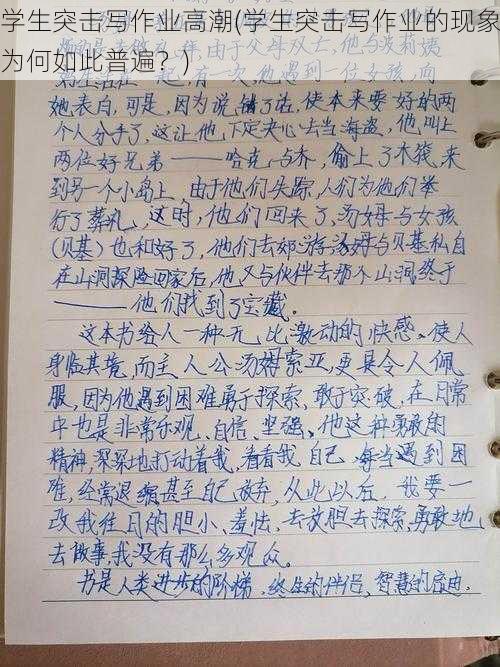 学生突击写作业高潮(学生突击写作业的现象
为何如此普遍？)
由于父母双亡，他与波莉姨
有一次他遇到一位女孩，向
她表白，可是，因为说错了话，使本来要好的两
个人分手了，这让他下定决心去当海盗，他叫上
两位好兄弟——哈克与乔，偷上了木筏，来
到另一个小岛上，由于他们失踪，人们为他们举
行了葬礼，这时，他们回来了，汤姆与女孩
(贝基)也和好了，他们去郊游，汤姆与贝基私自
在山洞探险回家后，他又与伙伴去那个山洞终于
——他们找到了宝藏。
这本书给人一种无比激动的快感、使人
身临其境，而主人公汤姆索亚，更是令人佩
服，因为他遇到困难勇于探索、敢于突破，在日常
中也是非常乐观、自信、坚强、他这种勇敢的
精神，深深地打动着我，看看我自己，每当遇到困
难，经常退缩甚至自己放弃，从此以后，我要一
改我往日的胆小、羞怯，去放胆去探索，勇敢地
去做事，我没有那么多观众。
书是人类进步的阶梯，终生的伴侣，智慧的